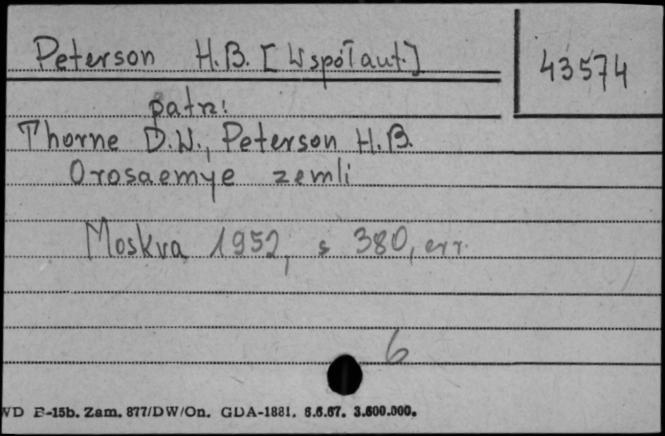 Peterson H.B. [Współaut.]
43574
patrz:
Thorne D.W., Peterson H.B.
Orosaemye zemli
Moskva 1952, s 380, err.
6
WD B-15b. Zam. 877/DW/On. GDA-1881. 6.6.67. 3.600.000.